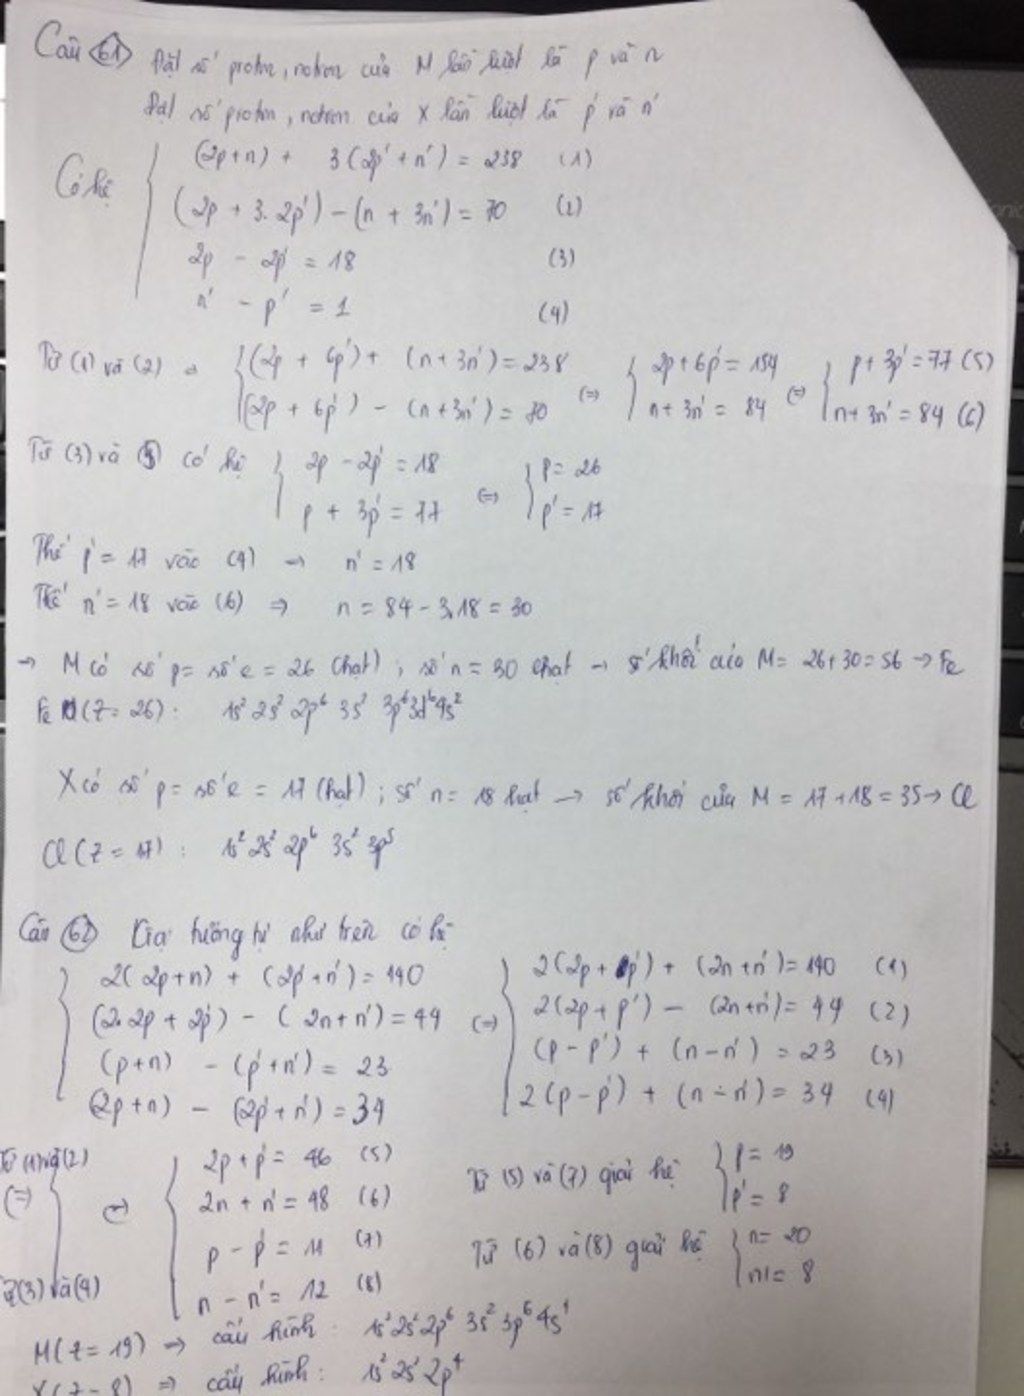 Câu 61) Đặt số proton, notron của M lần lượt là p và n
Đặt số proton, notron của X lần lượt là p' và n'
Có hệ
(2p+n) + 3(2p'+n') = 238 (1)
(2p + 3.2p') - (n + 3n') = 70 (2)
2p - 2p' = 18 (3)
n' - p' = 1 (4)
Từ (1) và (2) => {(2p + 6p') + (n+3n') = 238 (=) {2p+6p' = 154 (=) {p+3p' = 77 (5)
(2p + 6p') - (n+3n') = 70 n+3n' = 84 n+3n' = 84 (6)
Từ (3) và (5) có hệ {2p - 2p' = 18 (=) {p = 26
p + 3p' = 77 p' = 17
Thế p' = 17 vào (4) → n' = 18
Thế n' = 18 vào (6) => n = 84 - 3.18 = 30
→ M có số p = số e = 26 (hạt) ; số n = 30 hạt → số khối của M = 26+30 = 56 → Fe
Fe (Z = 26) : 1s² 2s² 2p⁶ 3s² 3p⁶ 3d⁶ 4s²
X có số p = số e = 17 (hạt) ; số n = 18 hạt → số khối của M = 17+18 = 35 → Cl
Cl (Z = 17) : 1s² 2s² 2p⁶ 3s² 3p⁵
Câu 62) tương tự như trên có hệ
2(2p+n) + (2p'+n') = 140 (=) 2(2p + p') + (2n+n') = 140 (1)
(2.2p + 2p') - (2n+n') = 44 2(2p+p') - (2n+n') = 44 (2)
(p+n) - (p'+n') = 23 (p-p') + (n-n') = 23 (3)
(2p+n) - (2p'+n') = 34 2(p-p') + (n-n') = 34 (4)
Từ (1) và (2) 2p+p' = 46 (5)
(=) 2n + n' = 48 (6) Từ (5) và (7) giải hệ {p = 19
p' = 8
p - p' = 11 (7) Từ (6) và (8) giải hệ {n = 20
Từ (3) và (4) n - n' = 12 (8) n' = 8
M (Z = 19) → cấu hình : 1s² 2s² 2p⁶ 3s² 3p⁶ 4s¹
X (Z = 8) => cấu hình : 1s² 2s² 2p⁴